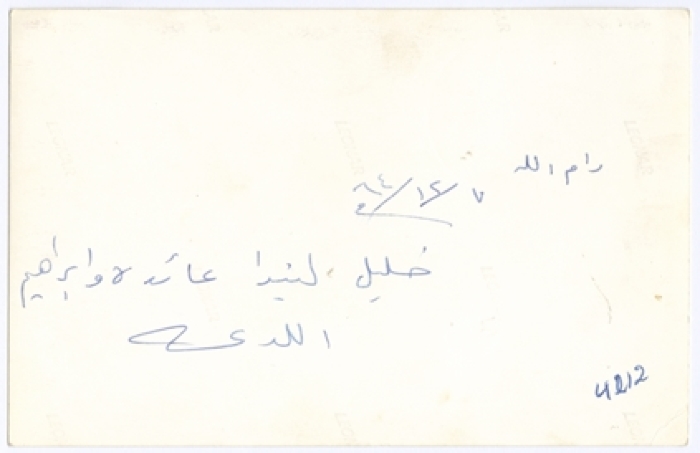 رام الله
٧/١٢/٦٤
خليل، ليندا عائدة وابراهيم
اللدعه
4212